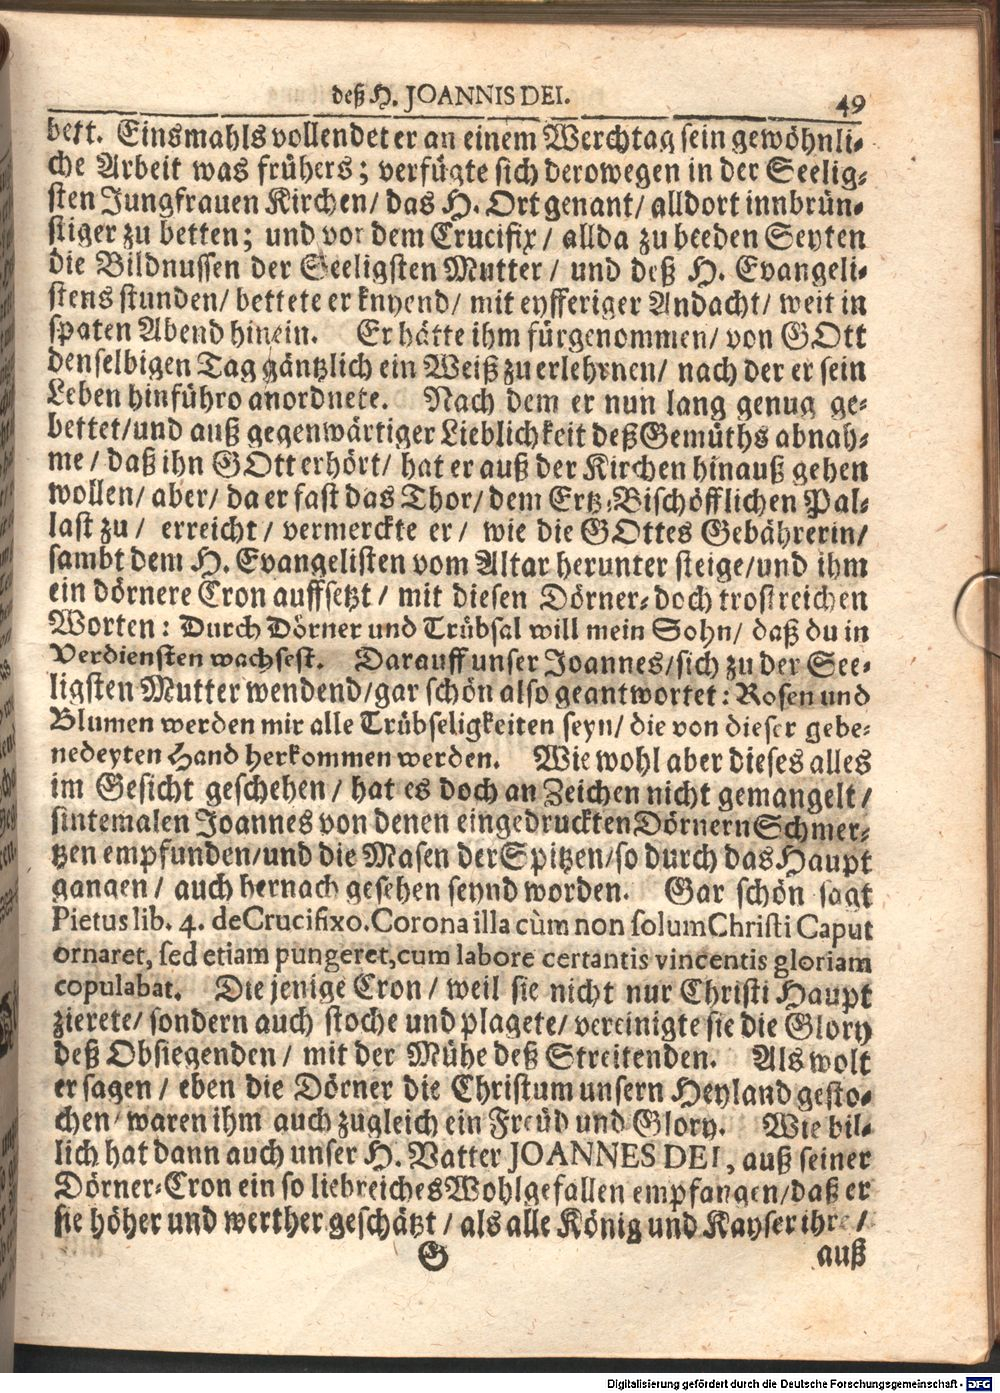 deß H. JOANNIS DEI. 49
bett. Einsmahls vollendet er an einem Werchtag sein gewöhnli-
che Arbeit was frühers; verfügte sich derowegen in der Seelig-
sten Jungfrauen Kirchen/ das H. Ort genant/ alldort innbrün-
stiger zu betten; und vor dem Crucifix/ allda zu beeden Seyten
die Bildnussen der Seeligsten Mutter/ und deß H. Evangeli-
stens stunden/ bettete er knyend/ mit eyfferiger Andacht/ weit in
spaten Abend hinein. Er hätte ihm fürgenommen/ von GOtt
denselbigen Tag gäntzlich ein Weiß zu erlehrnen/ nach der er sein
Leben hinführo anordnete. Nach dem er nun lang genug ge-
bettet/und auß gegenwärtiger Lieblichkeit deß Gemüths abnah-
me/ daß ihn GOtt erhört/ hat er auß der Kirchen hinauß gehen
wollen/ aber/ da er fast das Thor/ dem Ertz-Bischöfflichen Pal-
last zu/ erreicht/ vermerckte er/ wie die GOttes Gebährerin/
sambt dem H. Evangelisten vom Altar herunter steige/und ihm
ein dörnere Cron auffsetzt/ mit diesen Dörner-doch trostreichen
Worten: Durch Dörner und Trübsal will mein Sohn/ daß du in
Verdiensten wachsest. Darauff unser Joannes/sich zu der See-
ligsten Mutter wendend/gar schön also geantwortet: Rosen und
Blumen werden mir alle Trübseligkeiten seyn/ die von dieser gebe-
nedeyten Hand herkommen werden. Wie wohl aber dieses alles
im Gesicht geschehen/ hat es doch an Zeichen nicht gemangelt/
sintemalen Joannes von denen eingedruckten Dörnern Schmer-
tzen empfunden/und die Masen der Spitzen/so durch das Haupt
gangen/ auch hernach gesehen seynd worden. Gar schön sagt
Pietus lib. 4. de Crucifixo. Corona illa cùm non solum Christi Caput
ornaret, sed etiam pungeret, cum labore certantis vincentis gloriam
copulabat. Die jenige Cron/ weil sie nicht nur Christi Haupt
zierete/ sondern auch stoche und plagete/ vereinigte sie die Glory
deß Obsiegenden/ mit der Mühe deß Streitenden. Als wolt
er sagen/ eben die Dörner die Christum unsern Heyland gesto-
chen/ waren ihm auch zugleich ein Freüd und Glory. Wie bil-
lich hat dann auch unser H. Vatter JOANNES DEI, auß seiner
Dörner-Cron ein so liebreiches Wohlgefallen empfangen/daß er
sie höher und werther geschätzt/ als alle König und Kayser ihre/
G auß
Digitalisierung gefördert durch die Deutsche Forschungsgemeinschaft - DFG